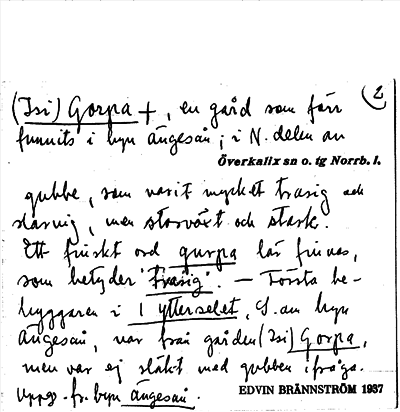 2
(Isi) Gorpa +, en gård som förr
funnits i byn Ängesån; i N. delen av
Överkalix sn o. tg Norrb. l.
gubbe, som varit mycket trasig och
slarvig, men storväxt och stark.
Ett finskt ord gurpa lär finnas,
som betyder 'trasig'. — Första be-
byggaren i 1 ytterselet, S. om byn
Ängesån, var från gården (Isi) Gorpa,
men var ej släkt med gubben ifråga.
Uppg. fr. byn Ängesån.
EDVIN BRÄNNSTRÖM 1937